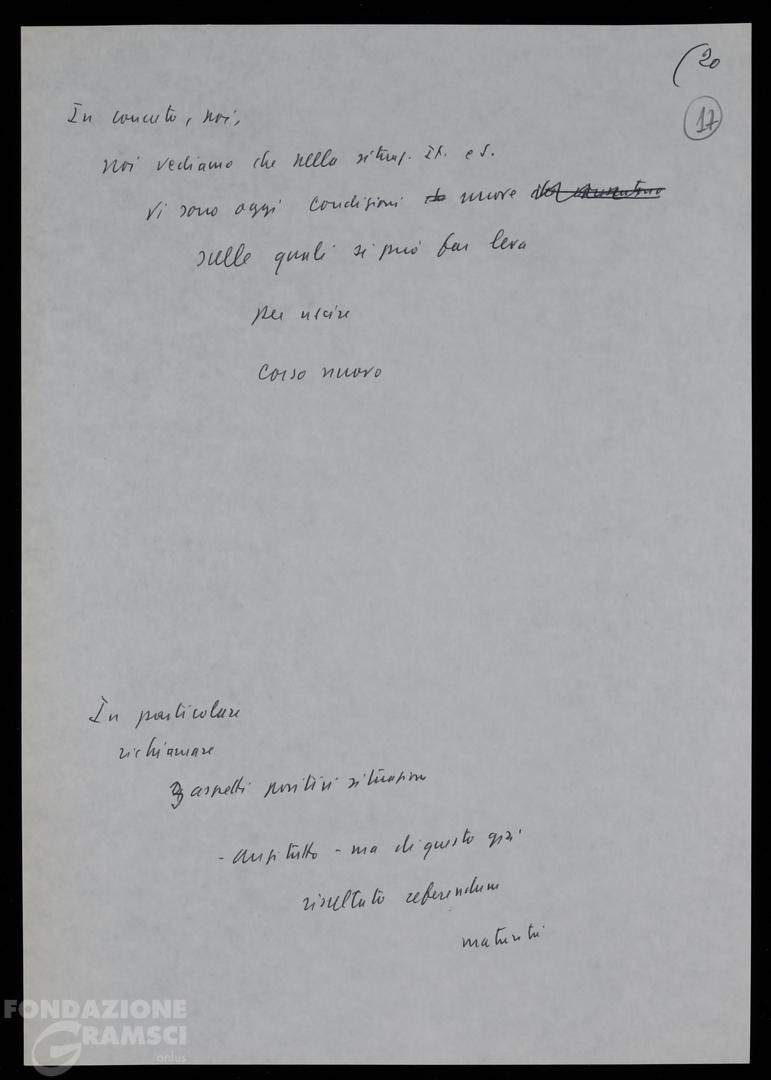 (20
17
In concreto, noi,
noi vediamo che nella situaz. It. e s.
vi sono oggi condizioni nuove
sulle quali si può far leva
per uscire
corso nuovo
In particolare
richiamare
3 aspetti positivi situazione
- anzitutto - ma di questo già
risultato referendum
maturità
FONDAZIONE
GRAMSCI
onlus